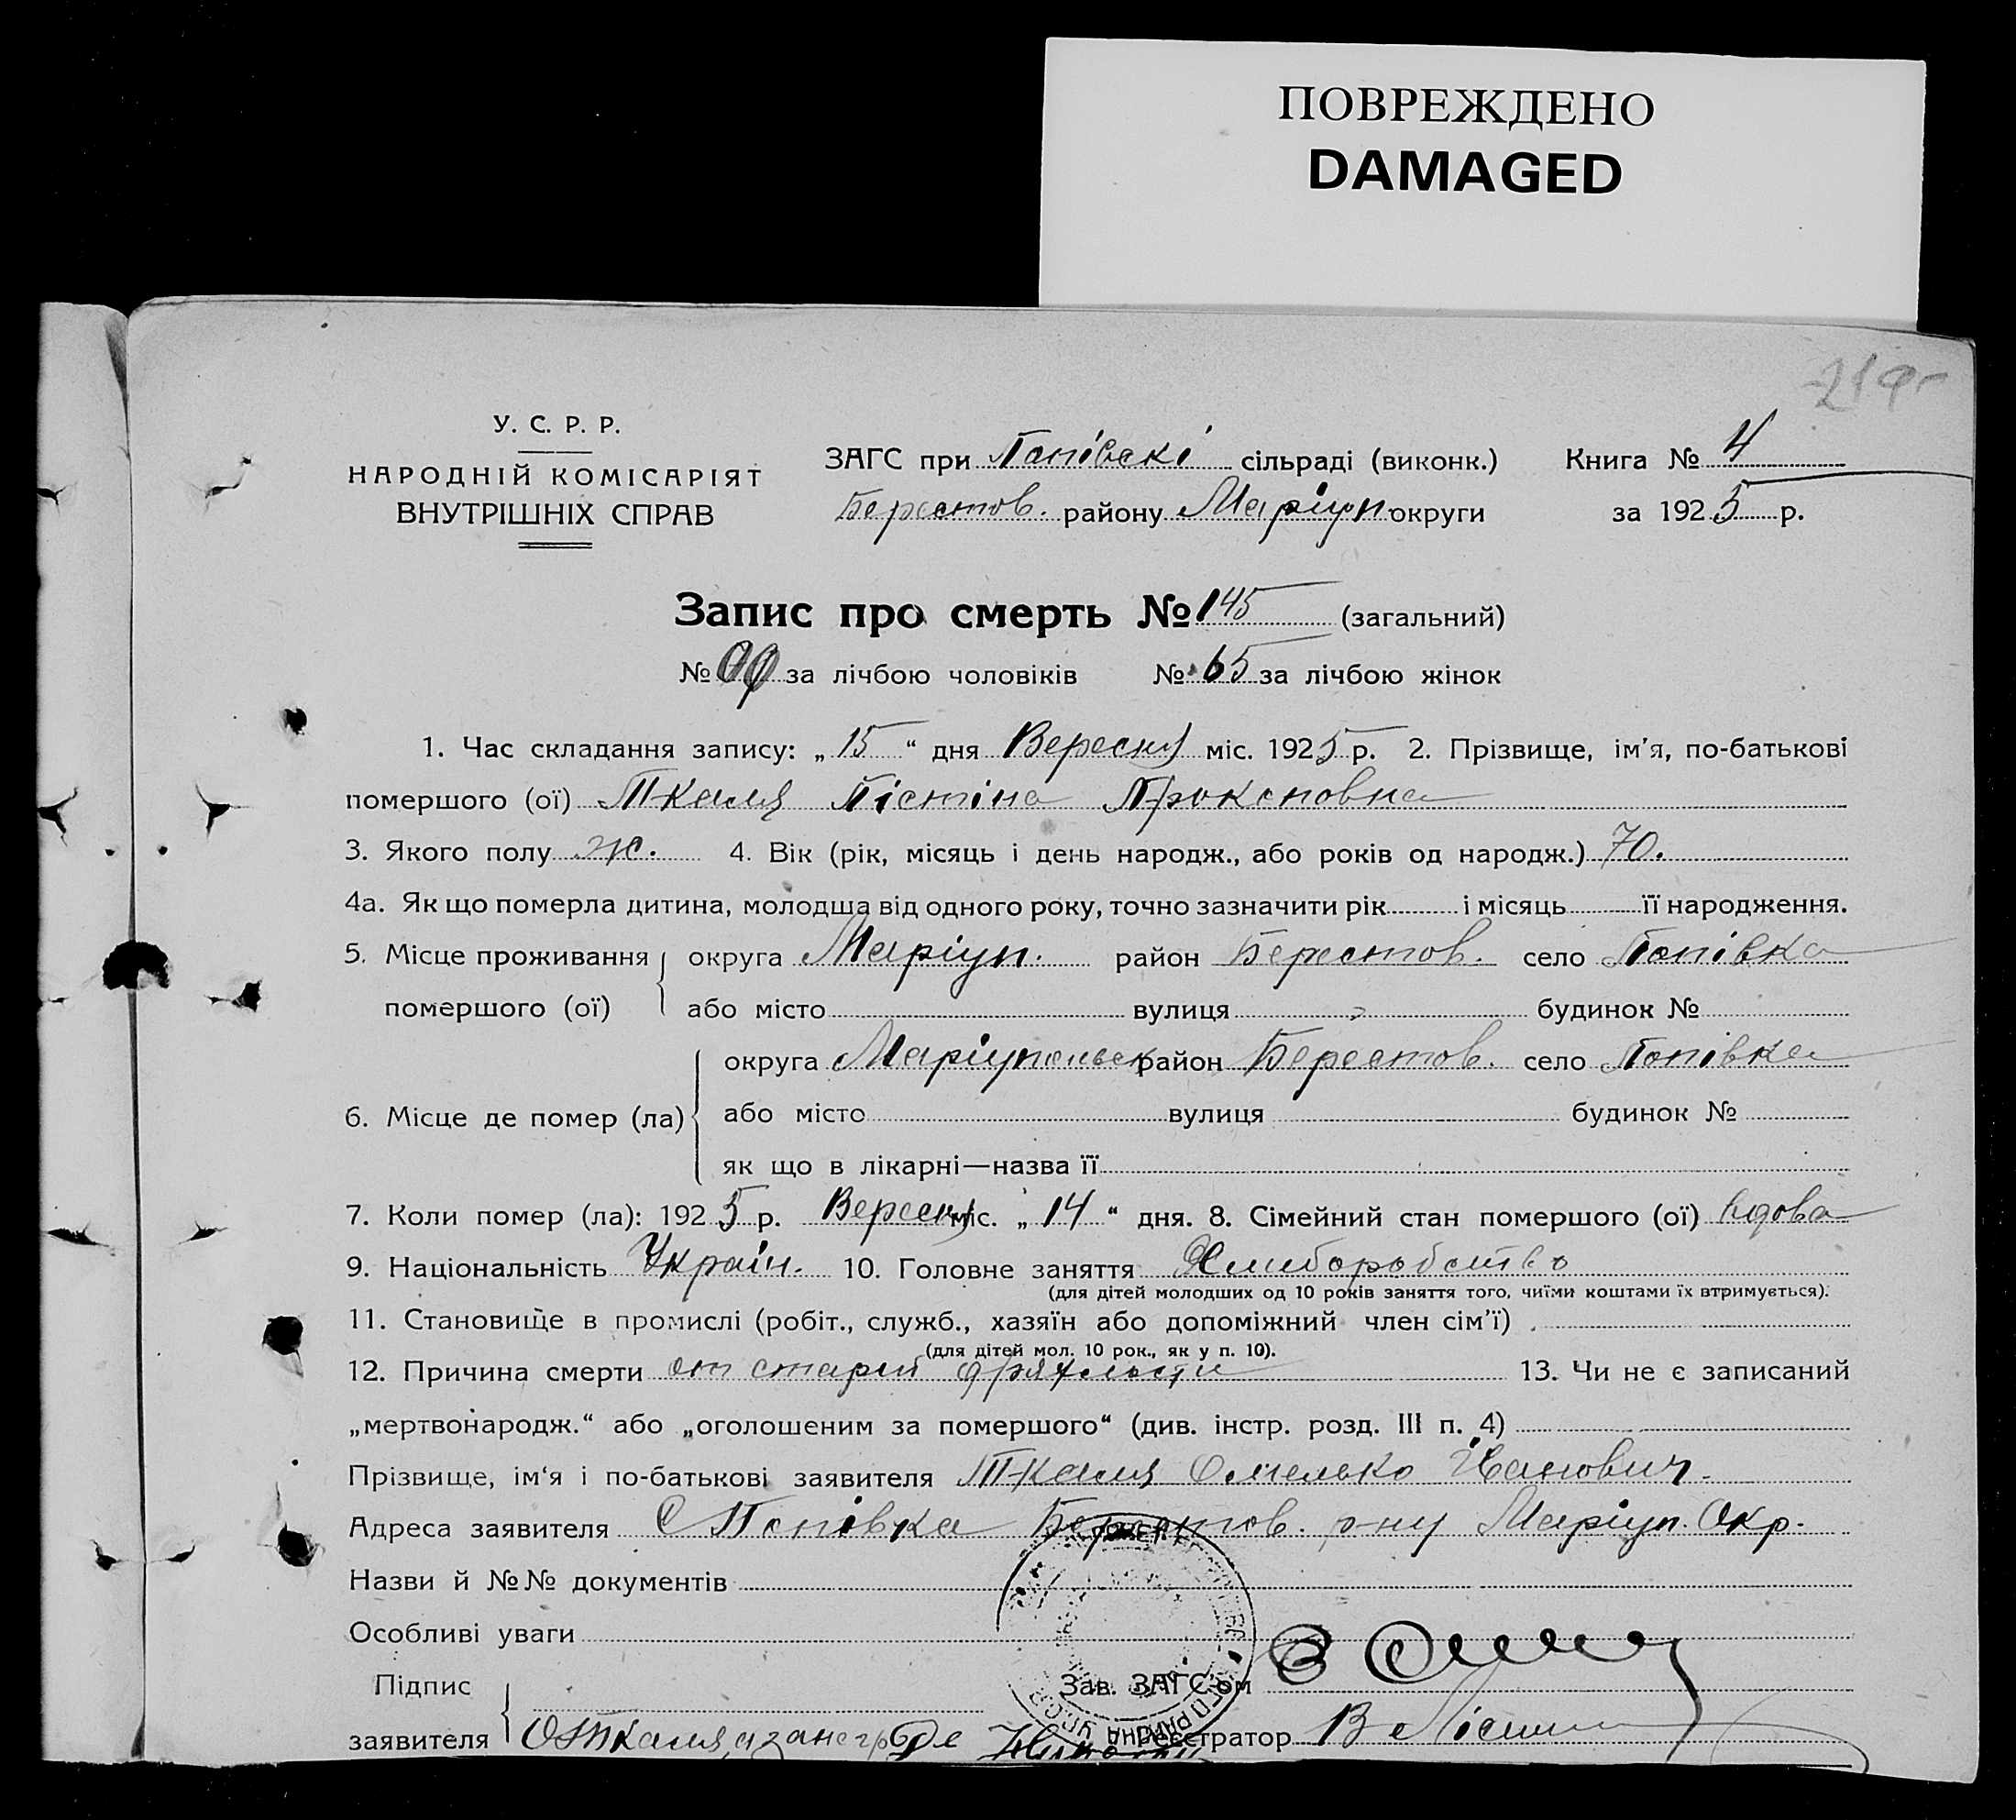 ПОВРЕЖДЕНО
DAMAGED
У. С. Р. Р.
НАРОДНІЙ КОМІСАРІЯТ
ВНУТРІШНІХ СПРАВ
ЗАГС при Попівскі сільраді (виконк.) Книга № 4
Берестов. району Маріуп. округи за 1925 р.
Запис про смерть № 145 (загальний)
№ за лічбою чоловіків № 65 за лічбою жінок
1. Час складання запису: „15“ дня Вересня міс. 1925 р. 2. Прізвище, ім’я, по-батькові
помершого (ої) Ткаля Пістіна
3. Якого полу ж. 4. Вік (рік, місяць і день народж., або років од народж.) 70.
4а. Як що померла дитина, молодша від одного року, точно зазначити рік і місяць її народження.
5. Місце проживання округа Маріуп. район Берестов. село Попівка
помершого (ої) або місто вулиця будинок №
округа Маріупольск район Берестов. село Попівка
6. Місце де помер (ла) або місто вулиця будинок №
як що в лікарні—назва її
7. Коли помер (ла): 1925 р. Вересня міс. „14“ дня. 8. Сімейний стан помершого (ої) вдова
9. Національність Україн. 10. Головне заняття Хлиборобство
(для дітей молодших од 10 років заняття того, чиїми коштами їх втримується).
11. Становище в промислі (робіт., служб., хазяїн або допоміжний член сім’ї)
(для дітей мол. 10 рок., як у п. 10).
12. Причина смерти от старой дряхлости 13. Чи не є записаний
„мертвонародж.“ або „оголошеним за помершого“ (див. інстр. розд. III п. 4)
Прізвище, ім‘я і по-батькові заявителя Ткаля Омелько Іванович.
Адреса заявителя С Попівка Берестов. р-ну Маріуп. Окр.
Назви й №№ документів
Особливі уваги
Підпис Зав. ЗАГС’ом
заявителя О Ткаля Реєстратор В